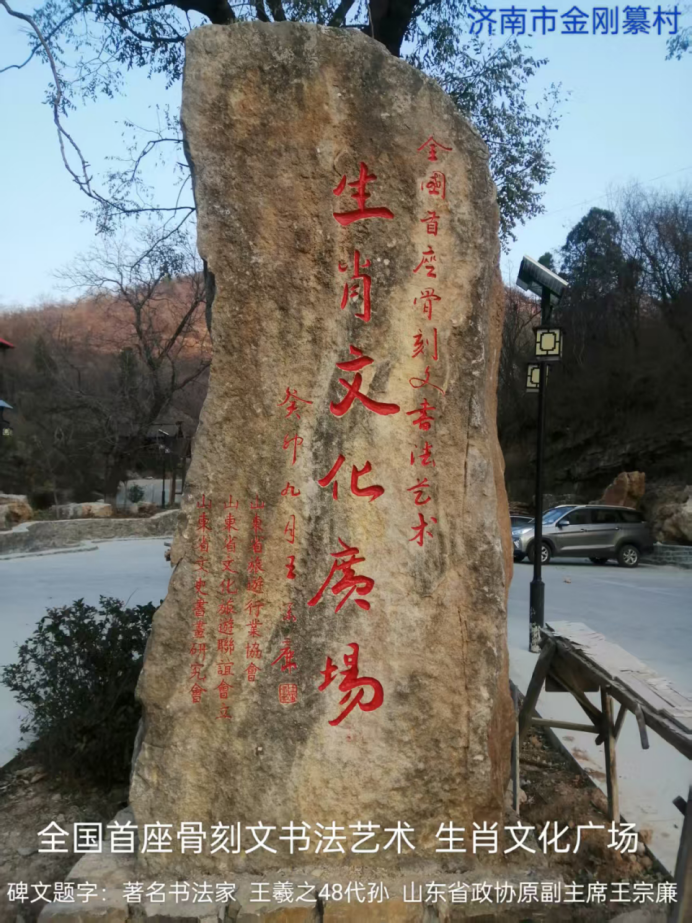 济南市金刚纂村
全國首座骨刻文书法艺术
生肖文化廣場
癸卯九月王宗廉
山東省旅遊行業協會
山東省文化旅遊聯誼會立
山東省文史書畫研究會
全国首座骨刻文书法艺术 生肖文化广场
碑文题字：著名书法家 王羲之48代孙 山东省政协原副主席王宗廉